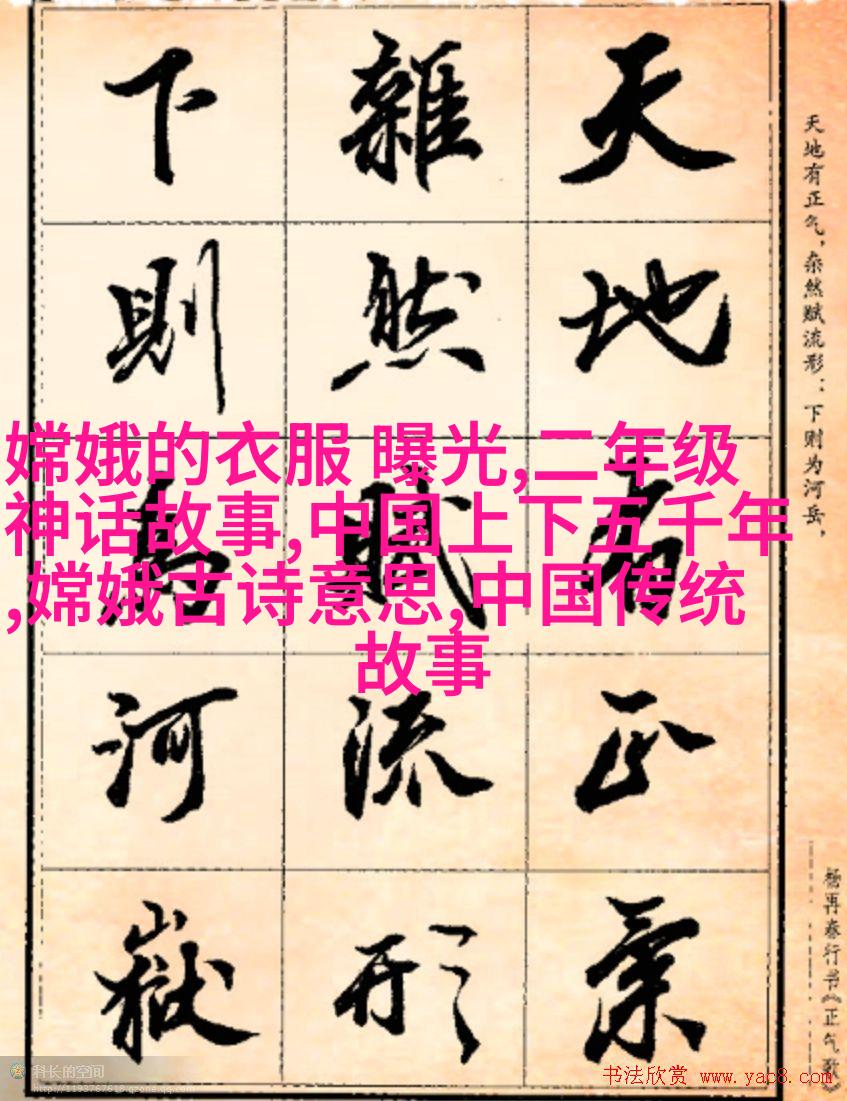 天地有正氣
雜然賦流形
下則為河嶽
天地有正气，杂然赋流形：下则为河岳，
杨再春行书《正气歌》
嫦娥的衣服 曝光,二年级
神话故事,中国上下五千年
,嫦娥古诗意思,中国传统
故事
科长的空间
http://1193767618.qzone.qq.com
书法欣赏 www.yac8.com